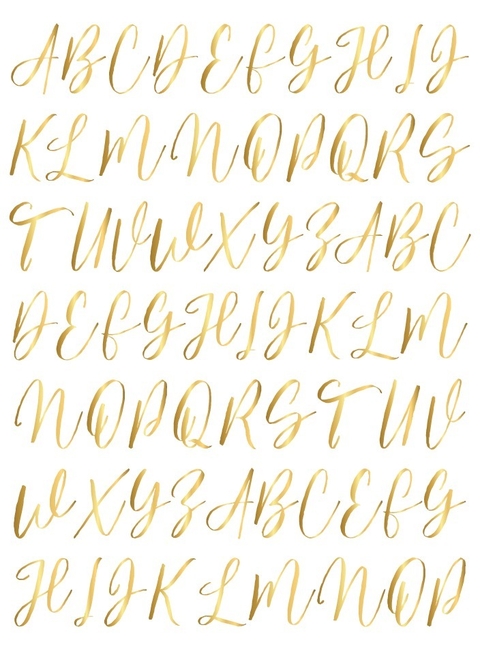 A B C D E F G H I J
K L M N O P Q R S
T U V W X Y Z A B C
D E F G H I J K L M
N O P Q R S T U V
W X Y Z A B C E F G
H I J K L M N O P